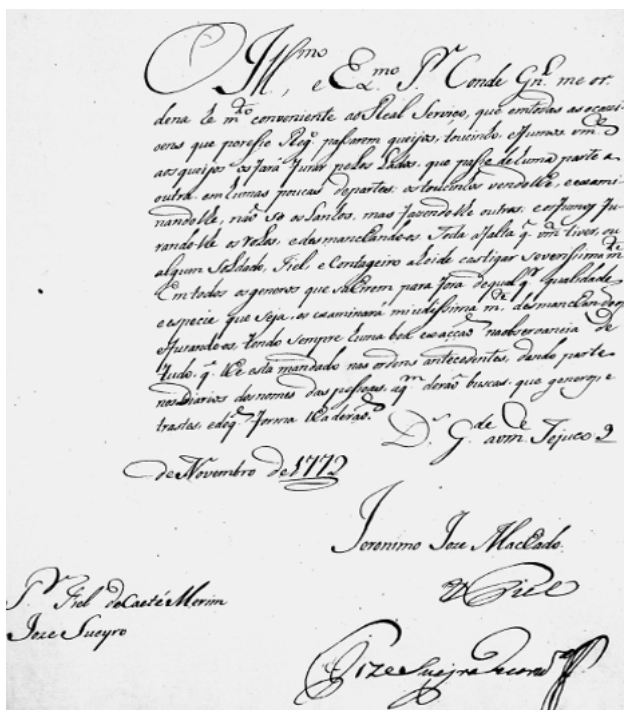 O Ill.mo, e Ex.mo S.r Conde Gn.l me or
dena he m.to conveniente ao Real Serviço, que em todas as occazi
oens que por esse Reg.o passarem queijos, toucinho, e fumos vm.ce
aos queijos os fará furar pelos lados, que passe de huma parte a
outra em humas poucas de partes: os toucinhos vendolhe, e exami
nandolhe, não só os Cantos, mas fazendolhe outras: e os fumos fu
randolhe os rollos, e desmanchandoos. Toda a falta q. vm tiver, ou
algum Soldado, Fiel, e Contageiro a heide castigar severissimam.te
Em todos os generos que sahirem para fora de qual q.r qualidade
e especie que seja, os examinará miudissima m.te desmanchandoos,
e furandoos, tendo sempre huma boa exacção na observancia de
tudo, q. lhe está mandado nas ordens antecedentes, dando parte
nos Diarios dos nomes das pessoas, a q.m derão buscas, que generos, e
trastes, e de q. forma lha derão.
D.s G.de a vm.ce Tejuco 2
de Novembro de 1772
Jeronimo Joze Machado.
Fiel
S.r Fiel de Caeté Merim
Joze Sueyro